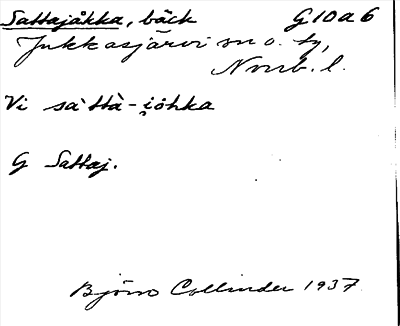 Sattajåkka, bäck G10a6
Jukkasjärvi sn o. tg,
Norrb. l.
Vi sa`ttà-i̯òhka
G Sattaj.
Björn Collinder 1937